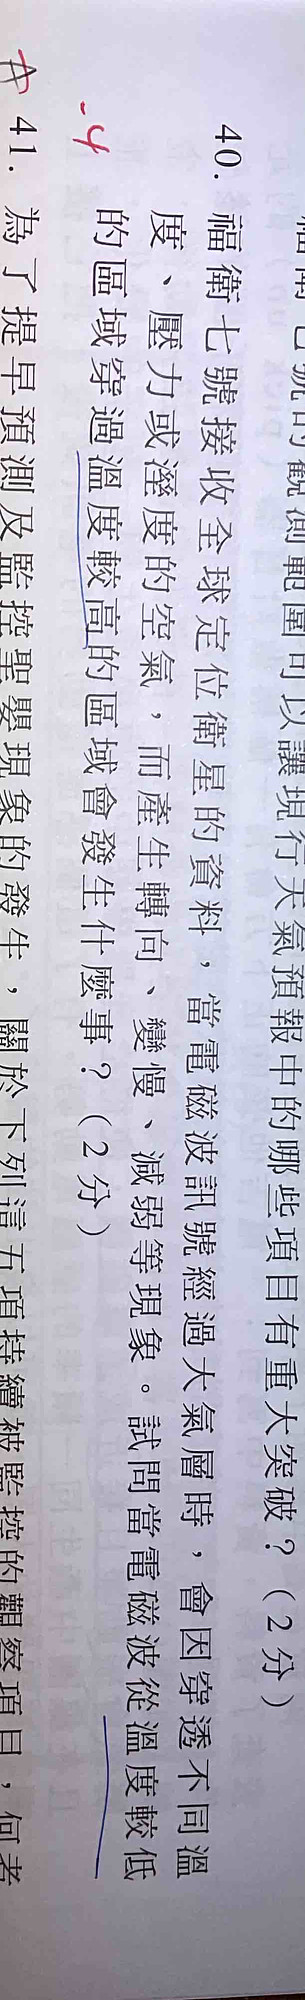 福衛七號的觀測範圍可以讓現行天氣預報中的哪些項目有重大突破？(2分)
40. 福衛七號接收全球定位衛星的資料，當電磁波訊號經過大氣層時，會因穿透不同溫
度、壓力或溼度的空氣，而產生轉向、變慢、減弱等現象。試問當電磁波從溫度較低
的區域穿過溫度較高的區域會發生什麼事？(2分)
-4
41. 為了提早預測及監控聖嬰現象的發生，關於下列這五項持續被監控的觀察項目，何者